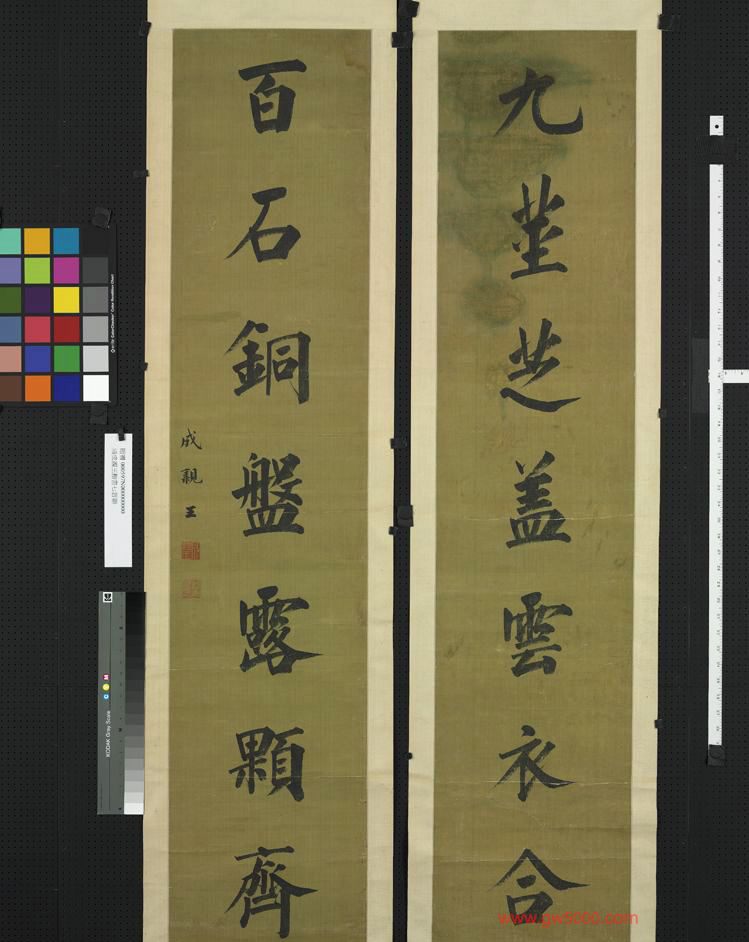 九茎芝盖雲衣合
百石銅盤露顆齊
成親王
www.gw5000.com
KODAK Gray Scale
C
Y
M